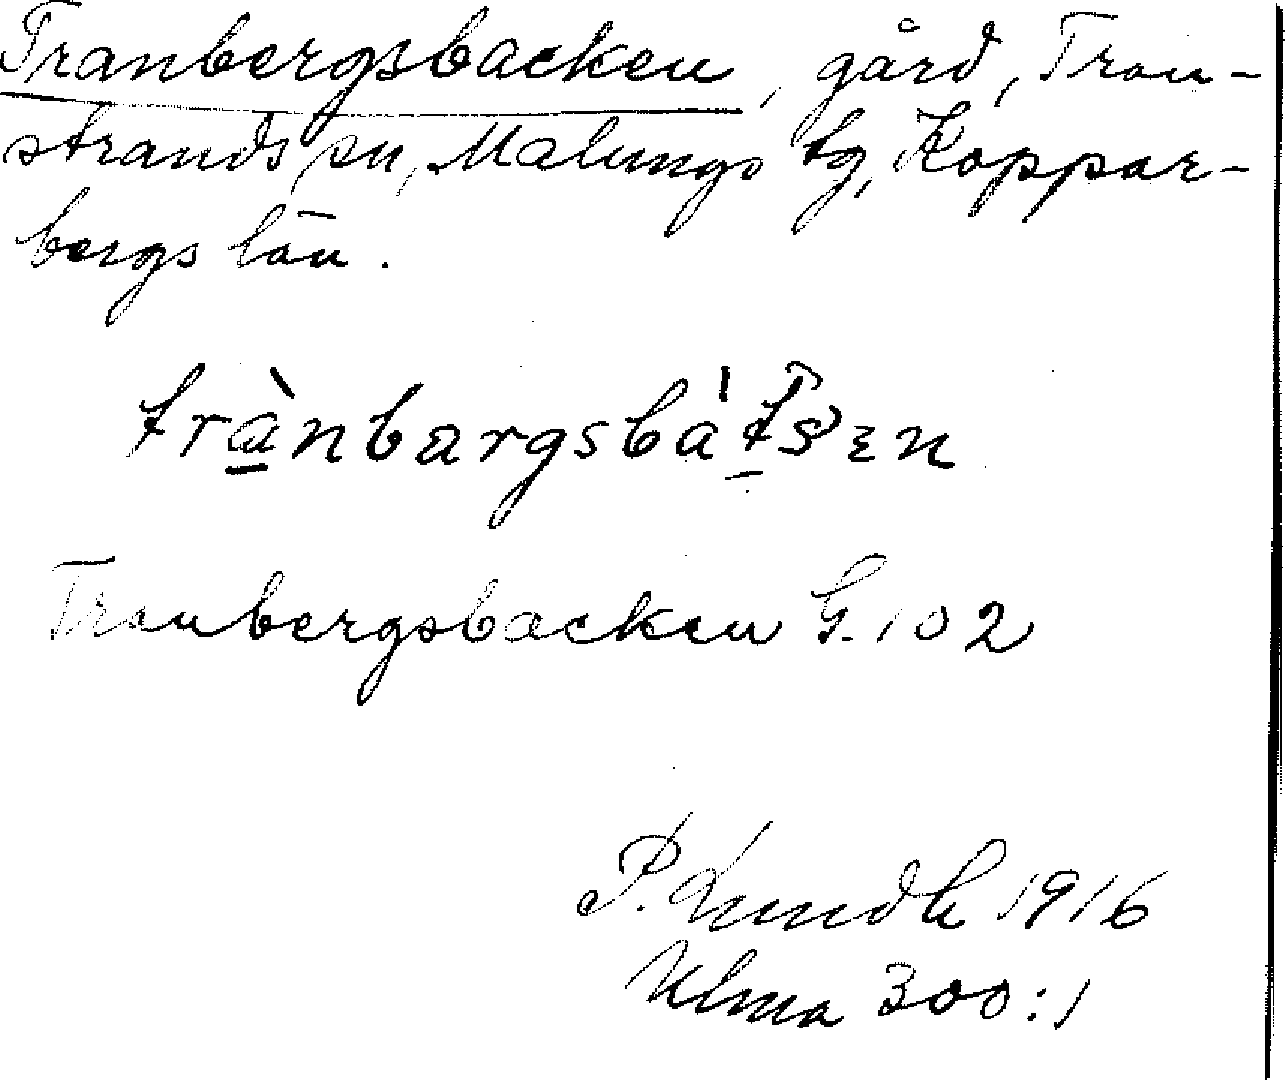 Tranbergsbacken, gård, Tran-
strands sn, Malungs tg, Koppar-
bergs län.
trànbargsbátsen
Tranbergsbacken G. 102
P. Lundh 1916
Ulma 300:1